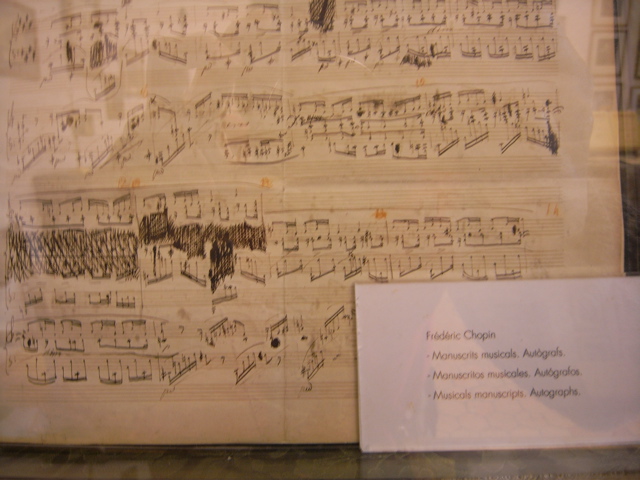 Frédéric Chopin
- Manuscrits musicals. Autògrafs.
- Manuscritos musicales. Autógrafos.
- Musicals manuscripts. Autographs.